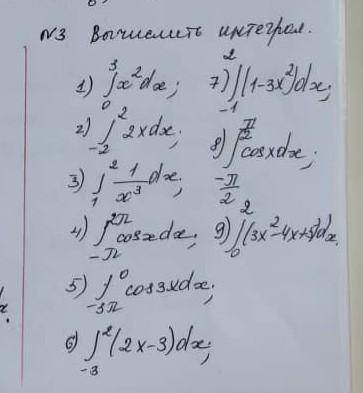 №3 Вычислить интеграл.
1) ∫₀³ x²dx;
2) ∫₋₂² 2xdx;
3) ∫₁² 1/x³ dx;
4) ∫₋π^2π cosxdx;
5) ∫₋₃π^0 cos3xdx;
6) ∫₋₃² (2x-3)dx;
7) ∫₋₁² (1-3x²)dx;
8) ∫_(-π/2)^(π/2) cosxdx;
9) ∫₀² (3x²-4x+5)dx.